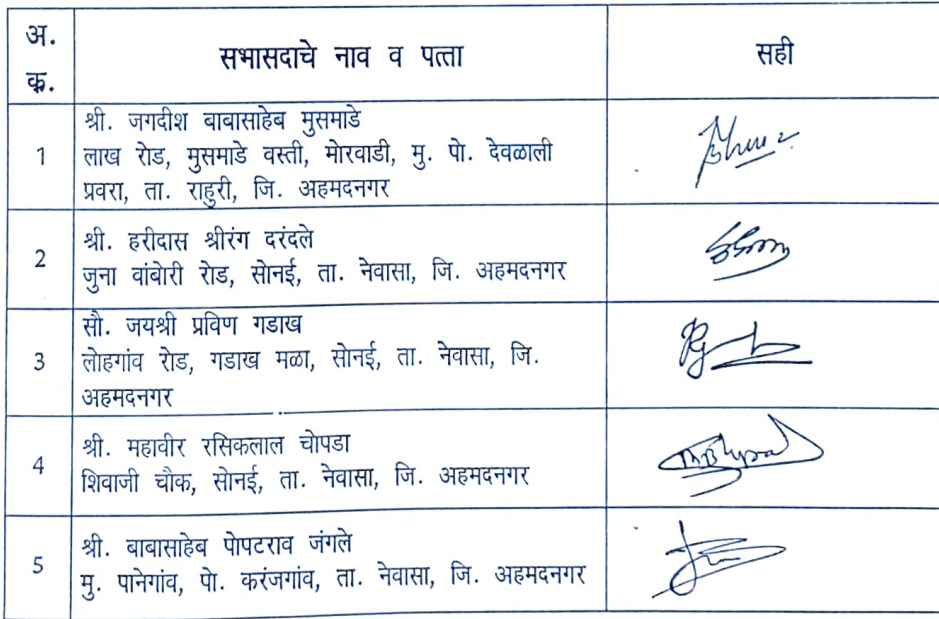 अ.
क्र.
सभासदाचे नाव व पत्ता
सही
1
श्री. जगदीश बाबासाहेब मुसमाडे
लाख रोड, मुसमाडे वस्ती, मोरवाडी, मु. पो. देवळाली
प्रवरा, ता. राहुरी, जि. अहमदनगर
2
श्री. हरीदास श्रीरंग दरंदले
जुना वांबोरी रोड, सोनई, ता. नेवासा, जि. अहमदनगर
3
सौ. जयश्री प्रविण गडाख
लोहगांव रोड, गडाख मळा, सोनई, ता. नेवासा, जि.
अहमदनगर
4
श्री. महावीर रसिकलाल चोपडा
शिवाजी चौक, सोनई, ता. नेवासा, जि. अहमदनगर
5
श्री. बाबासाहेब पोपटराव जंगले
मु. पानेगांव, पो. करंजगांव, ता. नेवासा, जि. अहमदनगर